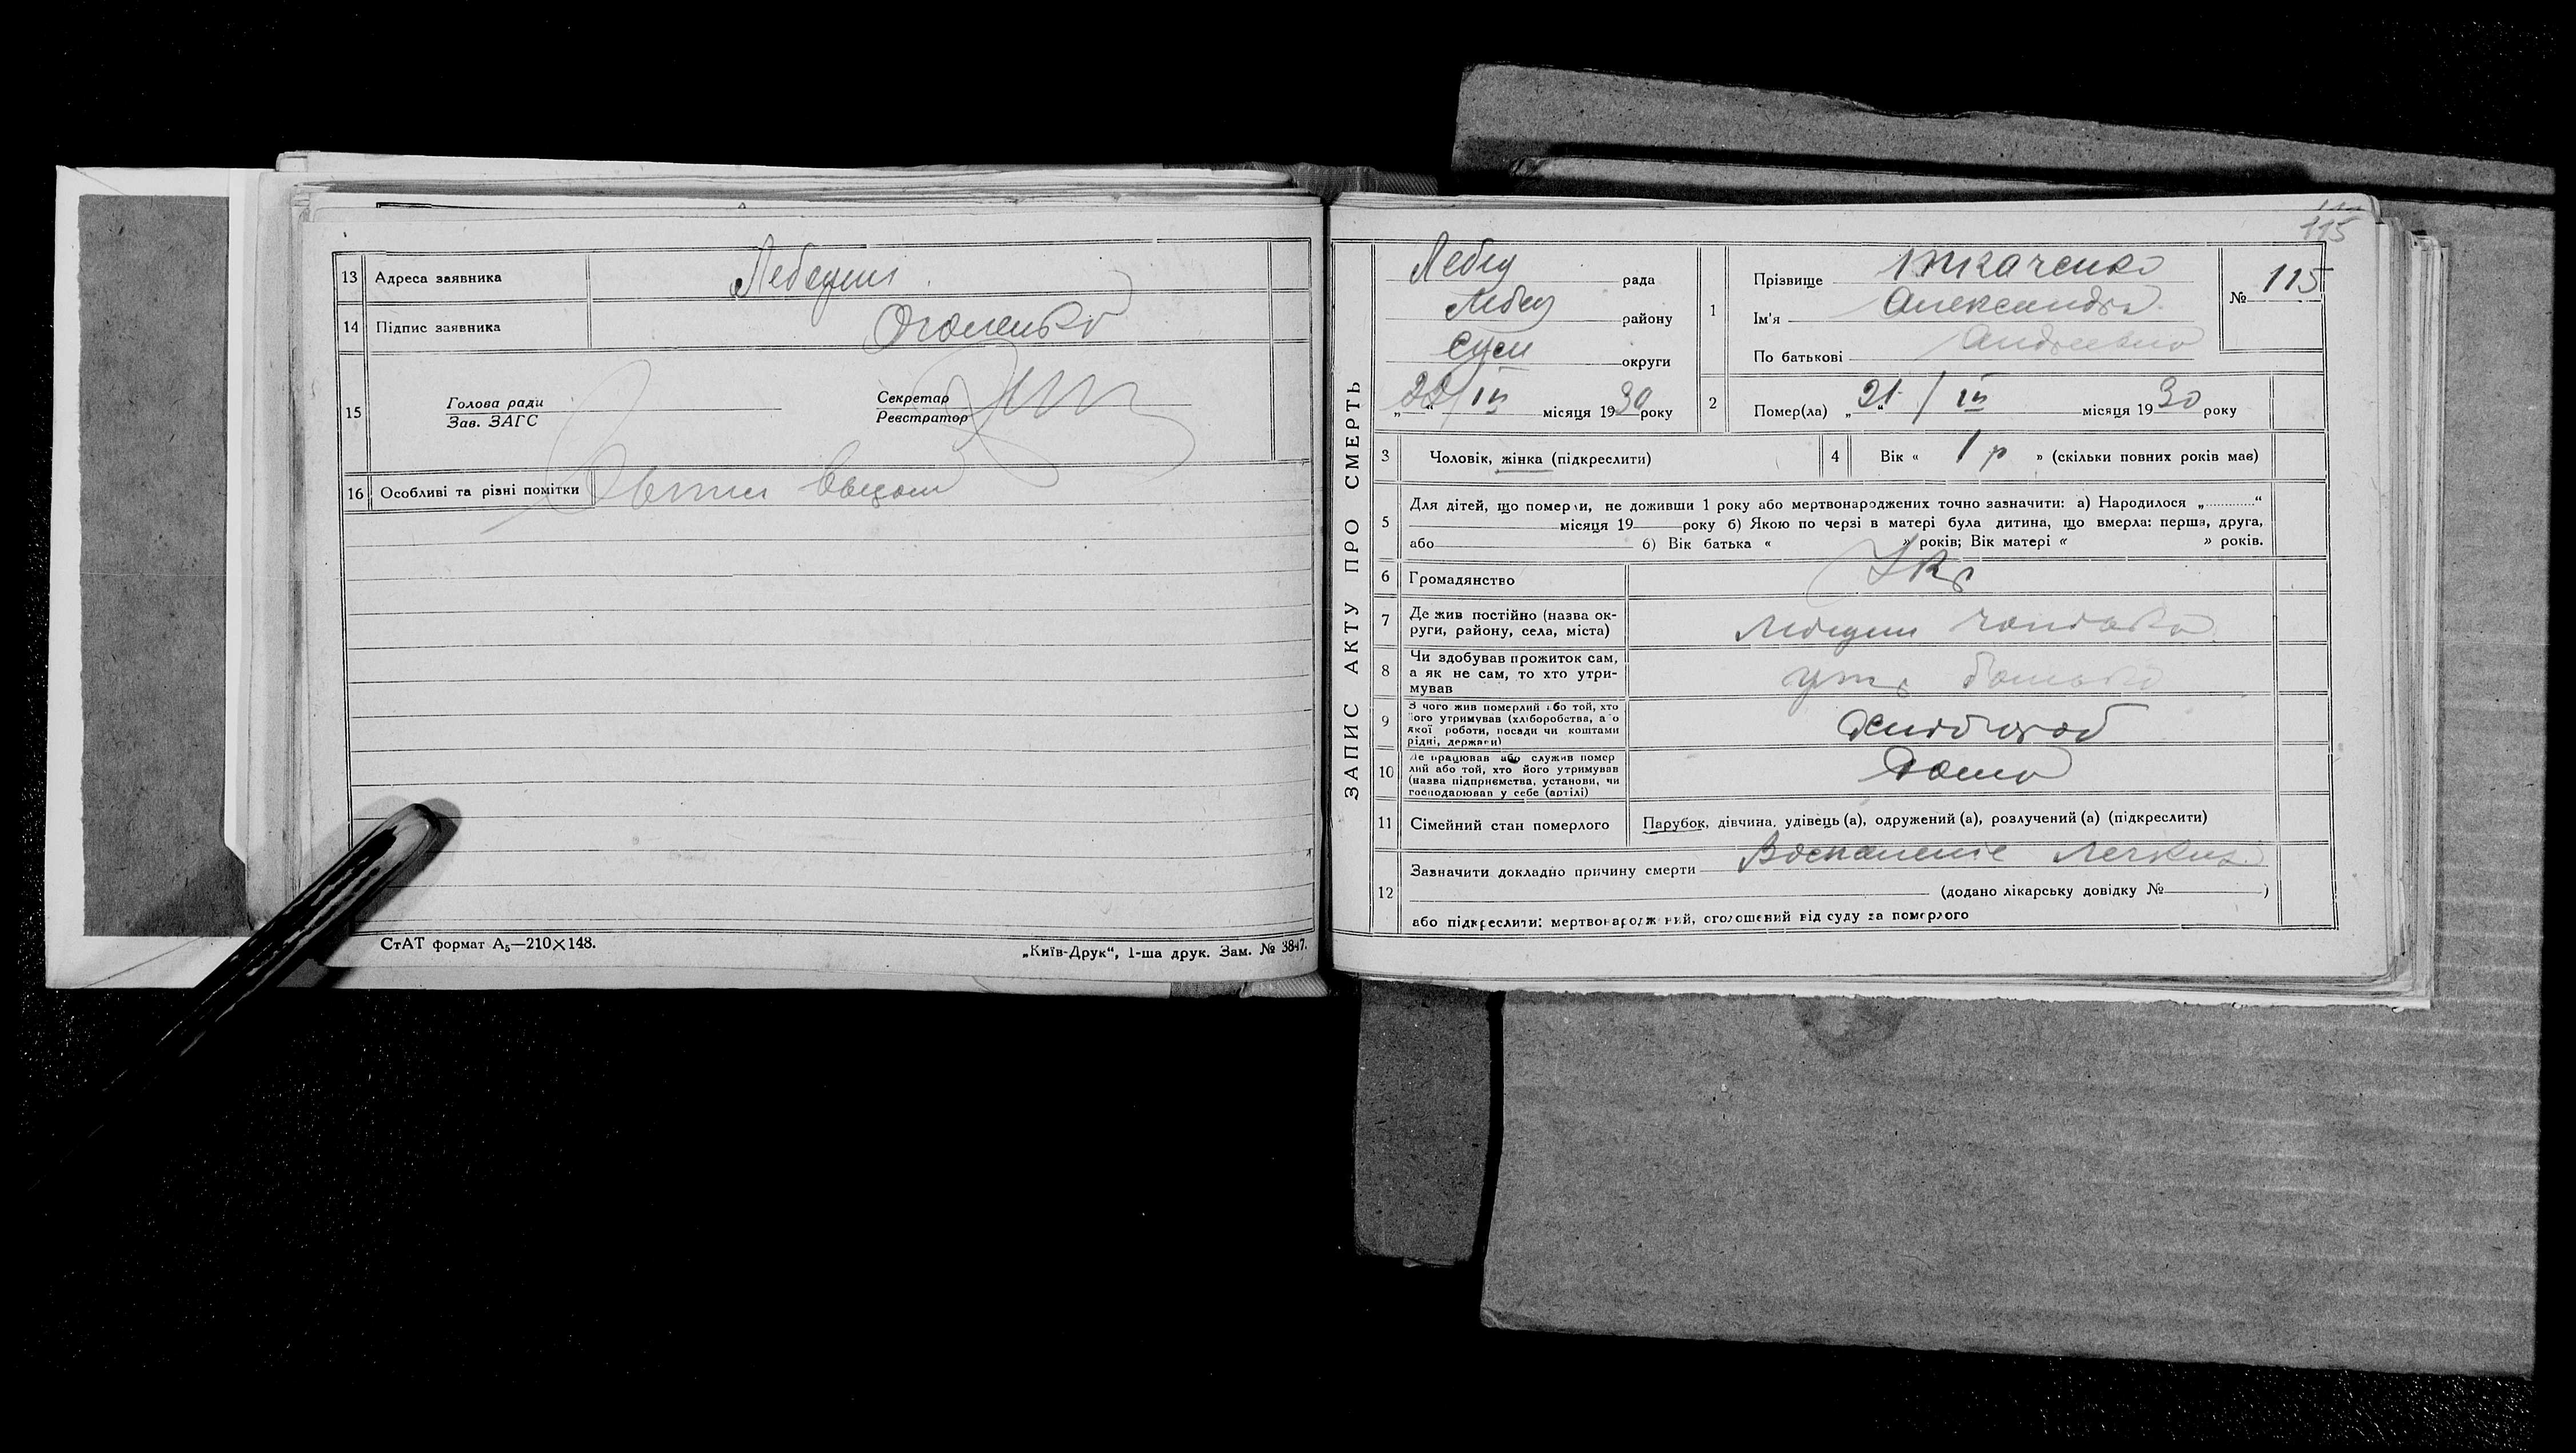 13 Адреса заявника Лебедин
14 Підпис заявника
15 Голова ради
Зав. ЗАГС
Секретар
Реєстратор
16 Особливі та різні помітки
СтАТ формат А₅—210×148.
„Київ-Друк“, 1-ша друк. Зам. № 3847.
115
ЗАПИС АКТУ ПРО СМЕРТЬ
Лебед рада
Лебед району
Сум округи
„22“/III місяця 1930 року
1 Прізвище Ткаченко
Ім'я Александра
По батькові Андреевна
№ 115
2 Помер(ла) „21“/III місяця 1930 року
3 Чоловік, жінка (підкреслити)
4 Вік « 1 р » (скільки повних років має)
5 Для дітей, що померли, не доживши 1 року або мертвонароджених точно зазначити: а) Народилося „ “
місяця 19 року б) Якою по черзі в матері була дитина, що вмерла: перша, друга,
або б) Вік батька « » років; Вік матері « » років.
6 Громадянство Укр
7 Де жив постійно (назва ок-
руги, району, села, міста) Лебедин
8 Чи здобував прожиток сам,
а як не сам, то хто утри-
мував утр батько
9 З чого жив померлий або той, хто
його утримував (хліборобства, або
якої роботи, посади чи коштами
рідні, держави) хлибороб
10 Де працював або служив помер
лий або той, хто його утримував
(назва підприємства, установи, чи
господарював у себе (артілі) дома
11 Сімейний стан померлого Парубок, дівчина, удівець (а), одружений (а), розлучений (а) (підкреслити)
12 Зазначити докладно причину смерти Воспаление легких
(додано лікарську довідку № )
або підкреслити: мертвонароджений, оголошений від суду за померлого